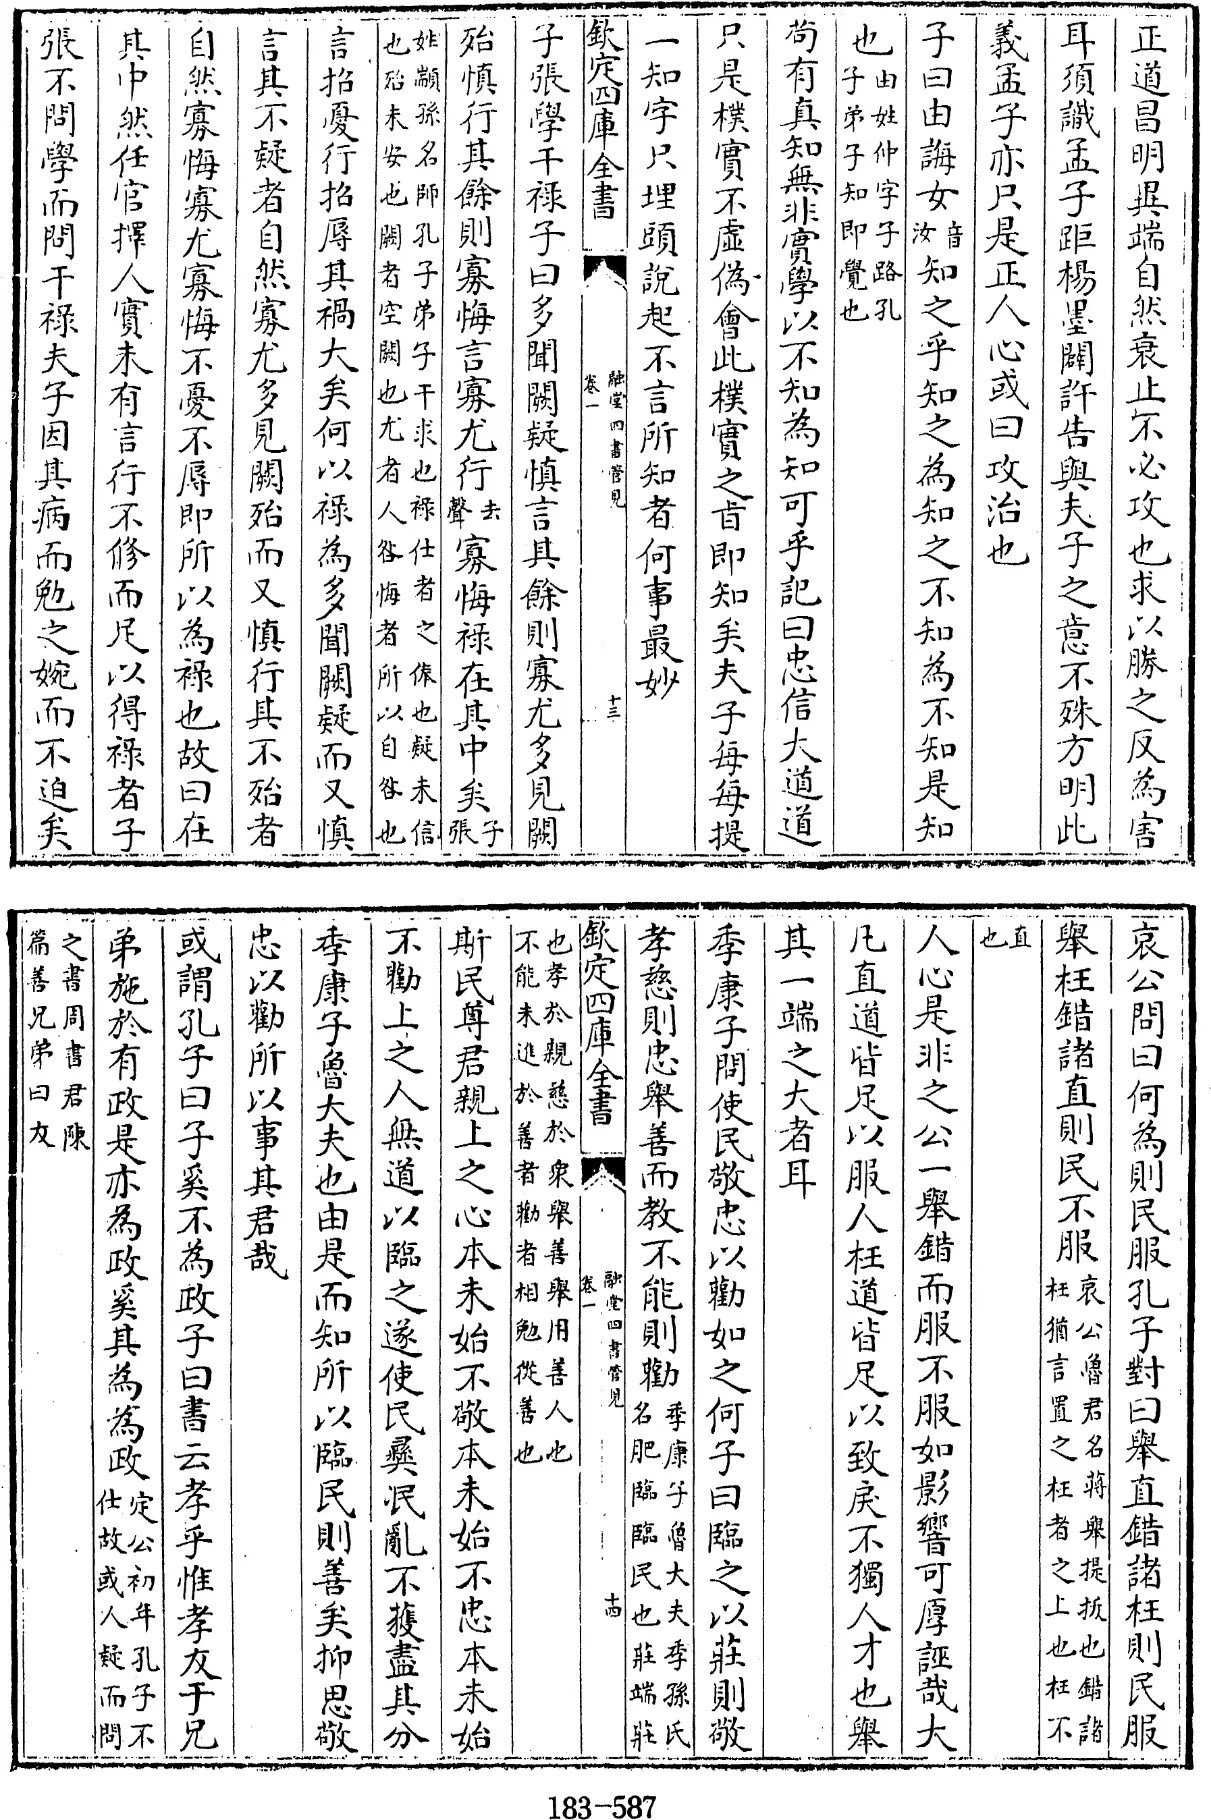 正道昌明異端自然衰止不必攻也求以勝之反為害
耳須識孟子距楊墨闢許告與夫子之意不殊方明此
義孟子亦只是正人心或曰攻治也
子曰由誨女音汝知之乎知之為知之不知為不知是知
也由姓仲字子路孔子弟子知即覺也
苟有真知無非實學以不知為知可乎記曰忠信大道道
只是樸實不虛偽會此樸實之旨即知矣夫子每每提
一知字只埋頭說起不言所知者何事最妙
欽定四庫全書 融堂四書管見 卷一 十三
子張學干祿子曰多聞闕疑慎言其餘則寡尤多見闕
殆慎行其餘則寡悔言寡尤行去聲寡悔祿在其中矣子張
姓顓孫名師孔子弟子干求也祿仕者之俸也疑未信
也殆未安也闕者空闕也尤者人咎悔者所以自咎也
言招憂行招辱其禍大矣何以祿為多聞闕疑而又慎
言其不疑者自然寡尤多見闕殆而又慎行其不殆者
自然寡悔寡尤寡悔不憂不辱即所以為祿也故曰在
其中然任官擇人實未有言行不修而足以得祿者子
張不問學而問干祿夫子因其病而勉之婉而不迫矣
哀公問曰何為則民服孔子對曰舉直錯諸枉則民服
舉枉錯諸直則民不服哀公魯君名蔣舉提扳也錯諸枉猶言置之枉者之上也枉不
直也
人心是非之公一舉錯而服不服如影響可厚誣哉大
凡直道皆足以服人枉道皆足以致戾不獨人才也舉
其一端之大者耳
季康子問使民敬忠以勸如之何子曰臨之以莊則敬
孝慈則忠舉善而教不能則勸季康子魯大夫季孫氏名肥臨臨民也莊端莊
欽定四庫全書 融堂四書管見 卷一 十四
也孝於親慈於衆舉善舉用善人也
不能未進於善者勸者相勉從善也
斯民尊君親上之心本未始不敬本未始不忠本未始
不勸上之人無道以臨之遂使民彞泯亂不獲盡其分
季康子魯大夫也由是而知所以臨民則善矣抑思敬
忠以勸所以事其君哉
或謂孔子曰子奚不為政子曰書云孝乎惟孝友于兄
弟施於有政是亦為政奚其為為政定公初年孔子不仕故或人疑而問
之書周書君陳
篇善兄弟曰友
183-587